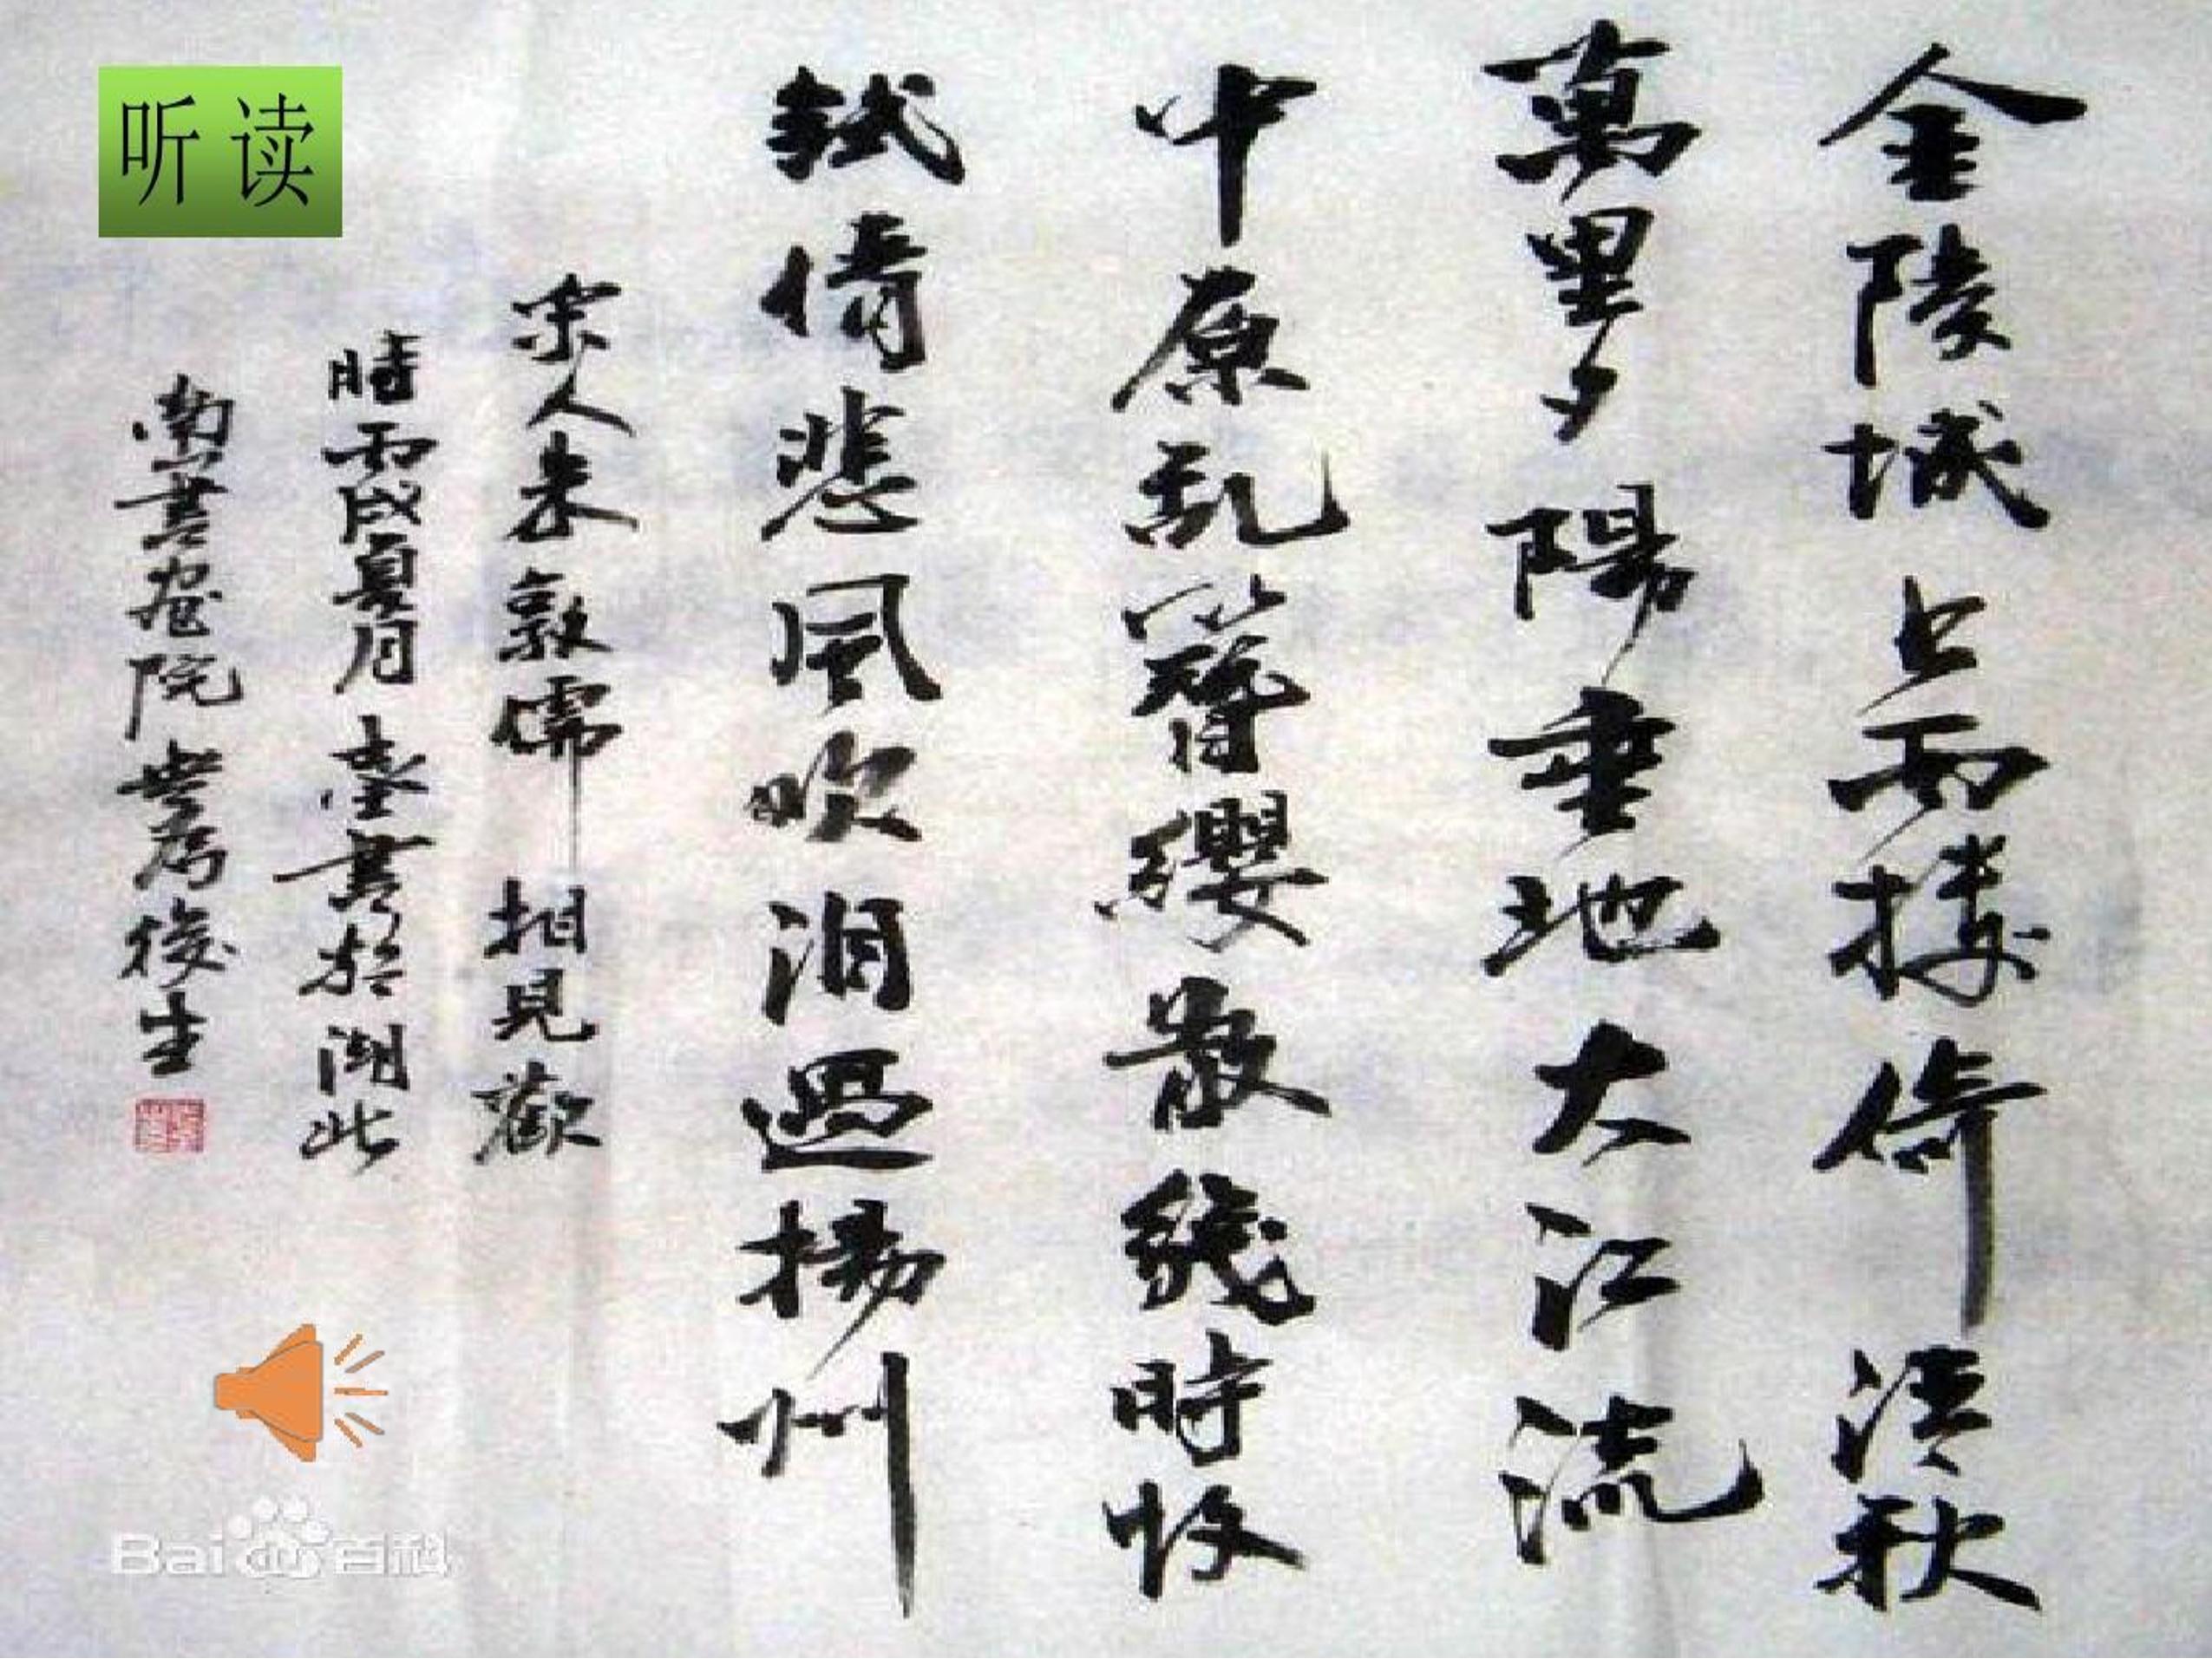 听读
金陵城上西樓倚清秋
萬里夕陽垂地大江流
中原乱簪纓散幾時收
試倩悲風吹泪過揚州
宋人朱敦儒 相見歡
時丙戌夏月 書於湖北
書 院 後生
Baidu百科